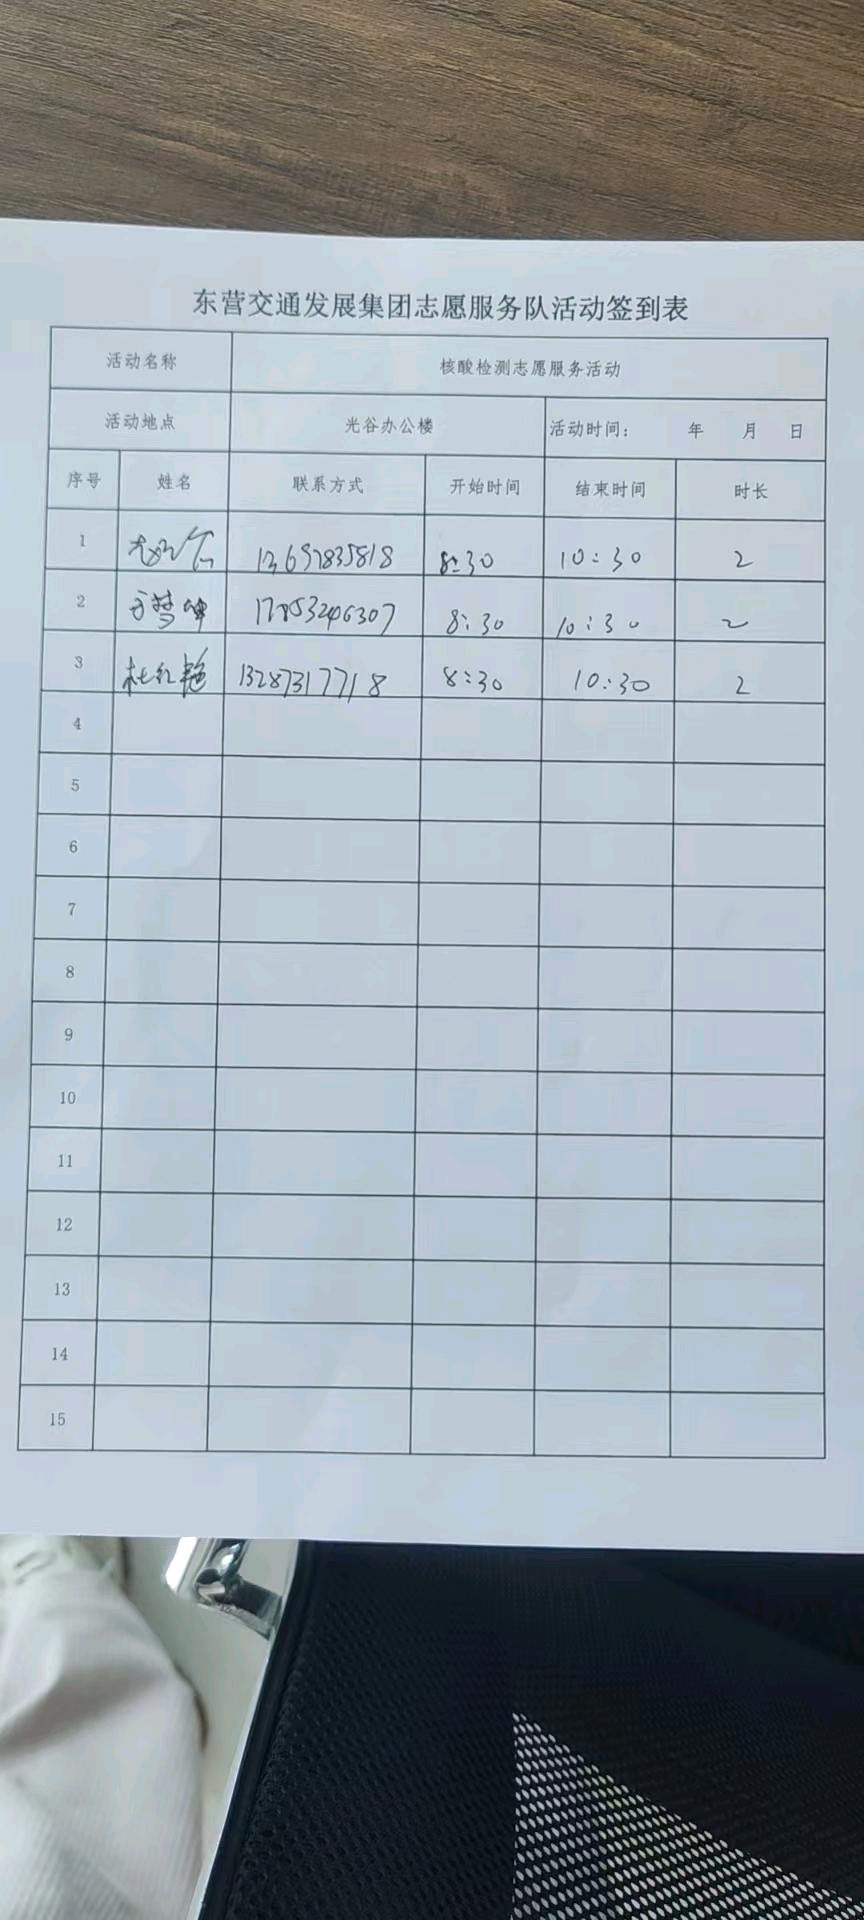 东营交通发展集团志愿服务队活动签到表
活动名称 核酸检测志愿服务活动
活动地点 光谷办公楼 活动时间: 年 月 日
序号 姓名 联系方式 开始时间 结束时间 时长
1 13697835818 8:30 10:30 2
2 方梦坤 17853246307 8:30 10:30 2
3 杜红艳 13287317718 8:30 10:30 2
4
5
6
7
8
9
10
11
12
13
14
15